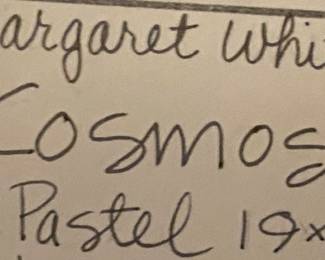 argaret Whi
Cosmos
Pastel 19x